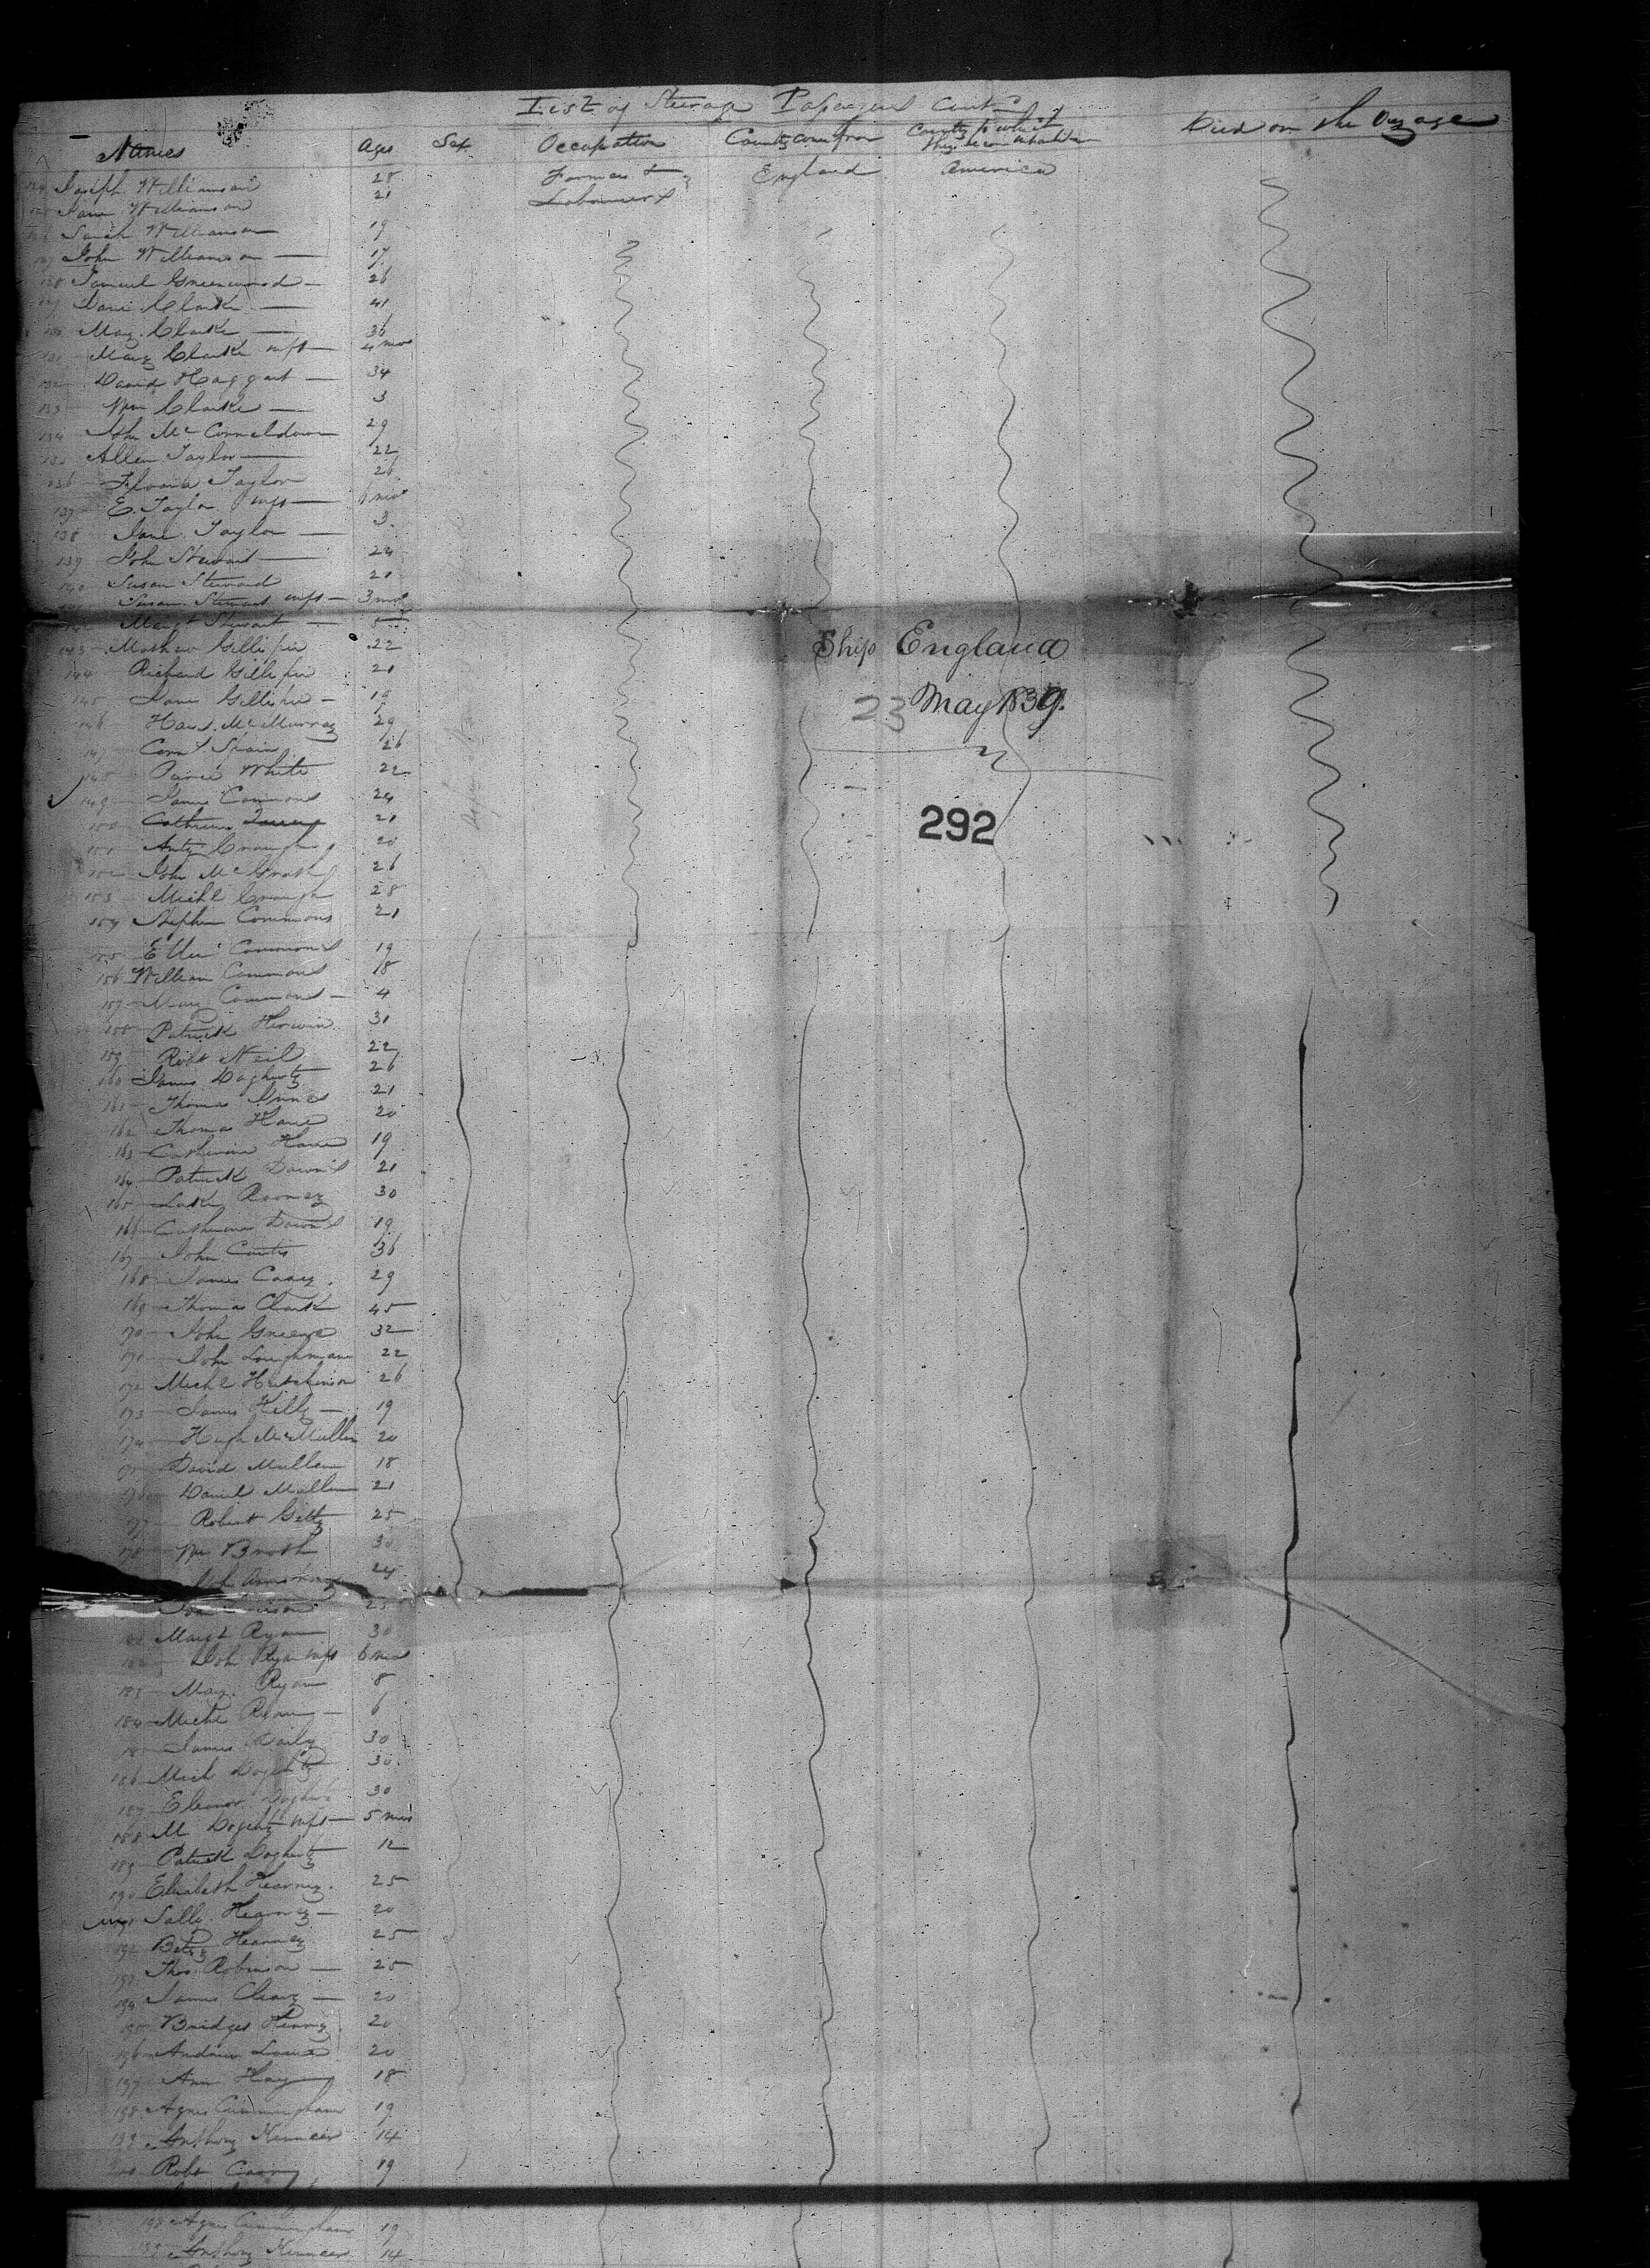 List of Steerage Passengers Cont
Names Ages Sex Occupation Country come from Country to which they become inhabitants Died on the Voyage
124 Joseph Williamson 28 Farmers & England America
125 Jane Williamson 21 Labourers
126 Sarah Williamson 19
127 John Williamson 17
128 Samuel Greenwood 26
129 Clarke 41
130 Mary Clarke 36
131 Mary Clarke inft 4 mos
132 David Haggart 34
133 Wm Clarke 3
134 John Mc 29
135 Allen Taylor 22
136 Taylor 26
137 E. Taylor inft mos
138 Jane Taylor 3
139 John Stewart 24
140 Susan Steward 21
141 Susan Stewart inft 3 mos
142 Margt Stewart 5
143 Mathew Gillispie 22
144 Richard Gillispie 21
145 Gillispie 19
146 McMurray 29
147 Spain 26
148 White 22
149 James Commons 24
150 Cathrine 21
151 20
152 John McGrath 26
153 Michl 28
154 Stephen Commons 21
155 Ellen Commons 19
156 William Commons 18
157 Mary Commons 4
158 Patrick 31
159 Robt Neil 22
160 James Dogherty 26
161 Thomas 21
162 Thomas 20
163 Catherine 19
164 Patrick Downs 21
165 Rooney 30
166 Catherine Downs 19
167 John Curtis 36
168 James Casey 29
169 Thomas Clark 45
170 John Greene 32
171 John Loughman 22
172 Michl Hutchinson 26
173 James Kelly 19
174 Hugh McMullen 20
175 David Mullen 18
176 Daniel Mullen 21
177 Robert Getty 25
178 Wm 30
John 24
25
181 Margt Ryan 30
182 John Ryan inft 6 mos
183 Mary Ryan 8
184 Michl Ryan 6
185 James Daily 30
186 Mich Dogherty 30
187 Eleanor Dogherty 30
188 M Dogherty inft 5 mos
189 Patrick Dogherty 12
190 Elizabeth Kearney 25
191 Sally Kearney 20
192 Betsy Kearney 25
193 Thos Robinson 25
194 James Cleary 20
195 Bridget 20
196 Andrew 20
197 Ann Hay 18
198 Agnes Cunningham 19
199 Anthony 14
200 Robt 19
Ship England
23 May 1839.
292
198 Agnes Cunningham 19
199 Anthony 14